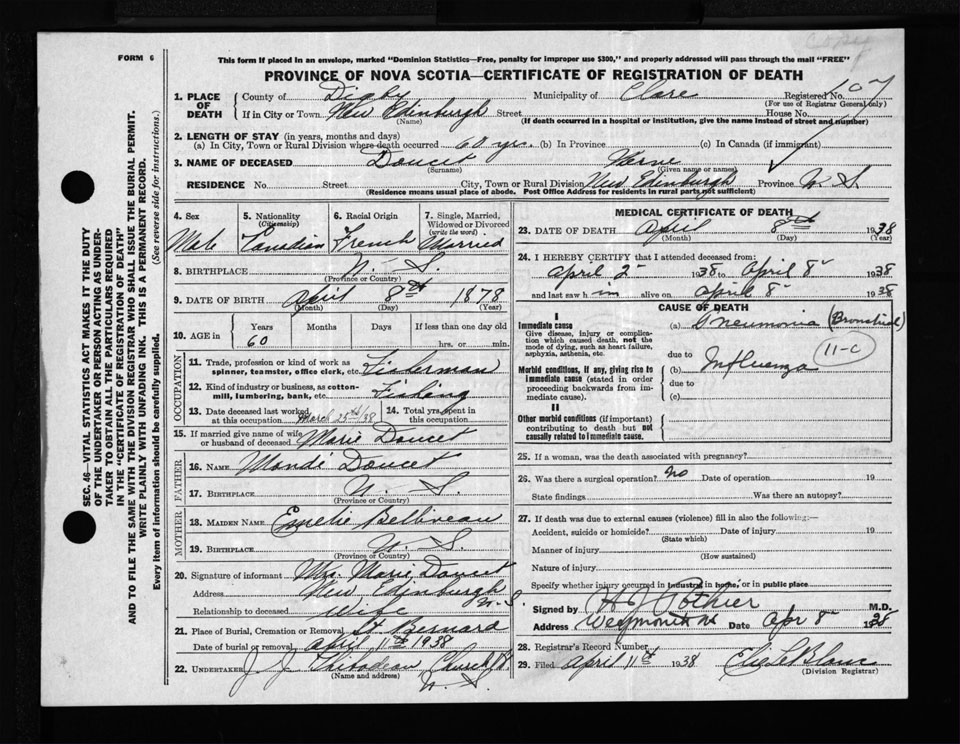 Copy
FORM 6
This form if placed in an envelope, marked "Dominion Statistics—Free, penalty for improper use $300," and properly addressed will pass through the mail "FREE"
PROVINCE OF NOVA SCOTIA—CERTIFICATE OF REGISTRATION OF DEATH
1. PLACE OF DEATH County of Digby Municipality of Clare Registered No. 107
(For use of Registrar General only)
If in City or Town New Edinburgh Street House No.
(Name) (If death occurred in a hospital or institution, give the name instead of street and number)
2. LENGTH OF STAY (in years, months and days)
(a) In City, Town or Rural Division where death occurred 60 yrs. (b) In Province (c) In Canada (if immigrant)
3. NAME OF DECEASED Doucet Verne
(Surname) (Given name or names)
RESIDENCE No. Street City, Town or Rural Division New Edinburgh Province N. S.
(Residence means usual place of abode. Post Office Address for residents in rural parts not sufficient)
4. Sex Male
5. Nationality (Citizenship) Canadian
6. Racial Origin French
7. Single, Married, Widowed or Divorced (write the word) Married
8. BIRTHPLACE N. S.
(Province or Country)
9. DATE OF BIRTH April 8th 1878
(Month) (Day) (Year)
10. AGE in Years Months Days If less than one day old
60 hrs. or min.
OCCUPATION
11. Trade, profession or kind of work as spinner, teamster, office clerk, etc. Fisherman
12. Kind of industry or business, as cotton-mill, lumbering, bank, etc. Fishing
13. Date deceased last worked at this occupation March 25th/38 14. Total yrs. spent in this occupation
15. If married give name of wife or husband of deceased Marie Doucet
FATHER
16. NAME Mandé Doucet
17. BIRTHPLACE N. S.
(Province or Country)
MOTHER
18. MAIDEN NAME Emelie Belliveau
19. BIRTHPLACE N. S.
(Province or Country)
20. Signature of informant Mrs. Marie Doucet
Address New Edinburgh N. S.
Relationship to deceased Wife
21. Place of Burial, Cremation or Removal St Bernard
Date of burial or removal April 11th 1938
22. UNDERTAKER J. J. Thibodeau, Church Pt.
(Name and address) N. S.
MEDICAL CERTIFICATE OF DEATH
23. DATE OF DEATH April 8th 1938
(Month) (Day) (Year)
24. I HEREBY CERTIFY that I attended deceased from:
April 2 1938 to April 8 1938
and last saw him alive on April 8 1938
CAUSE OF DEATH
I
Immediate cause
Give disease, injury or complication which caused death, not the mode of dying, such as heart failure, asphyxia, asthenia, etc.
(a) Pneumonia (Bronchial)
11-C
due to
Morbid conditions, if any, giving rise to immediate cause (stated in order proceeding backwards from immediate cause).
(b) Influenza
due to
(c)
II
Other morbid conditions (if important) contributing to death but not causally related to immediate cause.
25. If a woman, was the death associated with pregnancy?
26. Was there a surgical operation? No Date of operation 19
State findings Was there an autopsy?
27. If death was due to external causes (violence) fill in also the following:—
Accident, suicide or homicide? Date of injury 19
(State which)
Manner of injury
(How sustained)
Nature of injury
Specify whether injury occurred in industry, in home, or in public place
Signed by H J Pothier M.D.
Address Weymouth N Date Apr 8 1938
28. Registrar's Record Number
29. Filed April 11th 1938 Elie LeBlanc
(Division Registrar)
SEC. 46—VITAL STATISTICS ACT MAKES IT THE DUTY
OF THE UNDERTAKER OR PERSON ACTING AS UNDER-
TAKER TO OBTAIN ALL THE PARTICULARS REQUIRED
IN THE "CERTIFICATE OF REGISTRATION OF DEATH"
AND TO FILE THE SAME WITH THE DIVISION REGISTRAR WHO SHALL ISSUE THE BURIAL PERMIT.
WRITE PLAINLY WITH UNFADING INK. THIS IS A PERMANENT RECORD.
Every item of information should be carefully supplied. (See reverse side for instructions.)